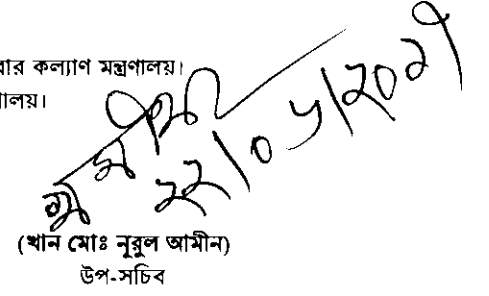 বার কল্যাণ মন্ত্রণালয়।
ণালয়।
২২।০৮।২০২১
(খান মোঃ নূরুল আমীন)
উপ-সচিব